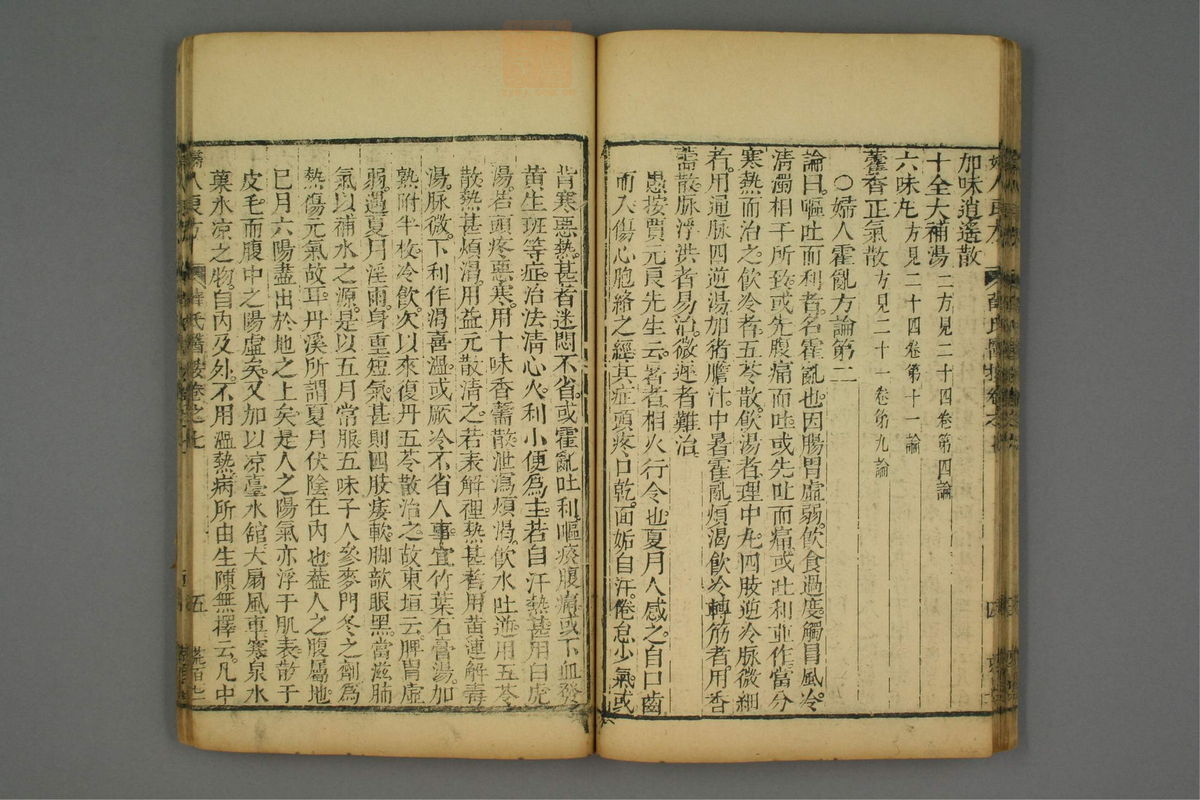 加味逍遙散
十全大補湯 二方見二十四卷第四論
六味丸 方見二十四卷第十一論
藿香正氣散 方見二十一卷第九論
○婦人霍亂方論第二
論曰嘔吐而利者名霍亂也因腸胃虛弱飲食過度觸冒風冷
清濁相干所致或先腹痛而吐或先吐而痛或吐利並作當分
寒熱而治之飲冷者五苓散飲湯者理中丸四肢逆冷脉微細
者用通脉四逆湯加猪膽汁中暑霍亂煩渴飲冷轉筋者用香
薷散脉浮洪者易治微遲者難治
愚按賈元良先生云暑者相火行令也夏月人感之自口齒
而入傷心胞絡之經其症頭疼口乾面垢自汗倦怠少氣或
背寒惡熱甚者迷悶不省或霍亂吐利嘔痰腹痛或下血發
黄生斑等症治法清心火利小便爲主若自汗熱甚用白虎
湯若頭疼惡寒用十味香薷散泄瀉煩渴飲水吐逆用五苓
散熱甚煩渴用益元散清之若表解裡熱甚者用黄連解毒
湯脉微下利作渴喜溫或厥冷不省人事宜竹葉石膏湯加
熟附半枚冷飲次以來復丹五苓散治之故東垣云脾胃虛
弱遇夏月淫雨身重短氣甚則四肢痿軟脚欹眼黑當滋肺
氣以補水之源是以五月常服五味子人參麥門冬之劑爲
熱傷元氣故耳丹溪所謂夏月伏陰在內也葢人之腹屬地
巳月六陽盡出於地之上矣是人之陽氣亦浮于肌表散于
皮毛而腹中之陽虛矣又加以凉臺水舘大扇風車寒泉水
菓氷凉之物自內及外不用溫熱病所由生陳無擇云凡中
薛氏醫按卷之七
五